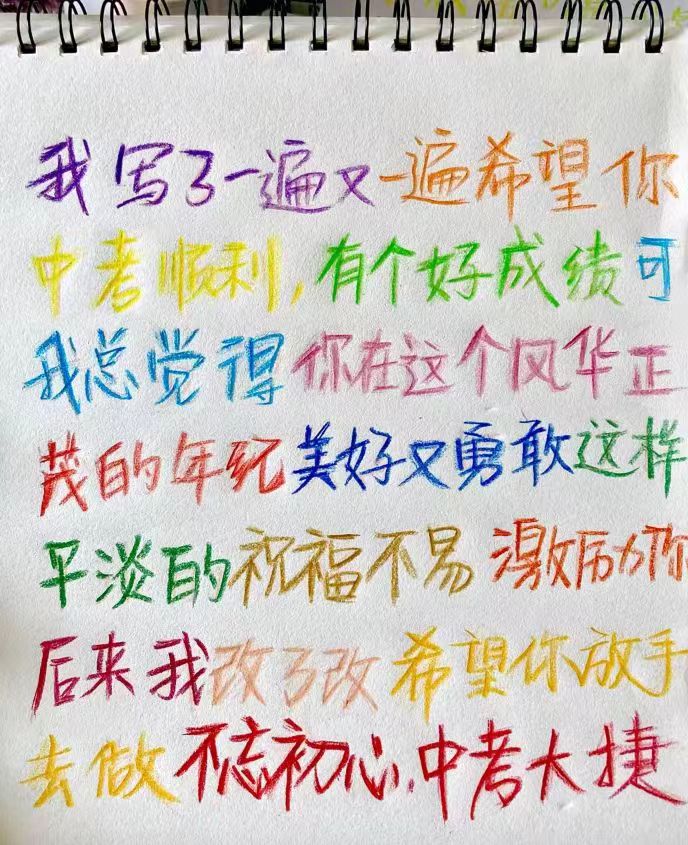 我写了一遍又一遍希望你
中考顺利,有个好成绩可
我总觉得你在这个风华正
茂的年纪美好又勇敢这样
平淡的祝福不易激励你
后来我改了改希望你放手
去做不忘初心.中考大捷